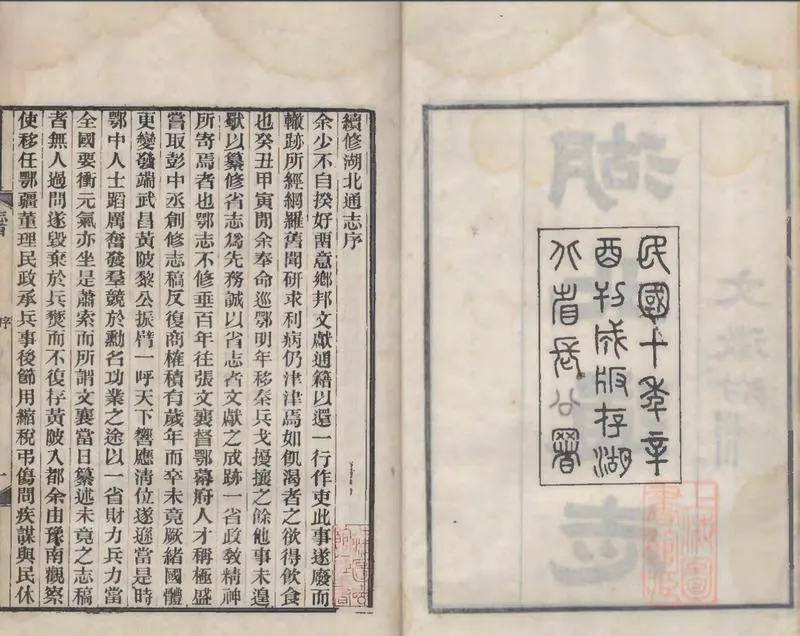 民國十年辛
酉刊成版存湖
北省長公署
續修湖北通志序
余少不自揆好畱意鄉邦文獻通籍以還一行作吏此事遂廢而
轍跡所經網羅舊聞研求利病仍津津焉如飢渴者之欲得飲食
也癸丑甲寅閒余奉命巡鄂明年移秦兵戈擾攘之餘他事未遑
以纂修省志爲先務誠以省志者文獻之成跡一省政敎精神
所寄焉者也鄂志不修垂百年往張文襄督鄂幕府人才稱極盛
嘗取彭中丞創修志稿反復商榷積有歲年而卒未竟厥緒國體
更變發端武昌黃陂黎公振臂一呼天下響應淸位遂遜當是時
鄂中人士蹈厲奮發羣競於勳名功業之途以一省財力兵力當
全國要衝元氣亦坐是蕭索而所謂文襄當日纂述未竟之志稿
者無人過問遂毀棄於兵燹而不復存黃陂入都余由豫南觀察
使移任鄂疆董理民政承兵事後節用縮稅弔傷問疾謀與民休
序
一